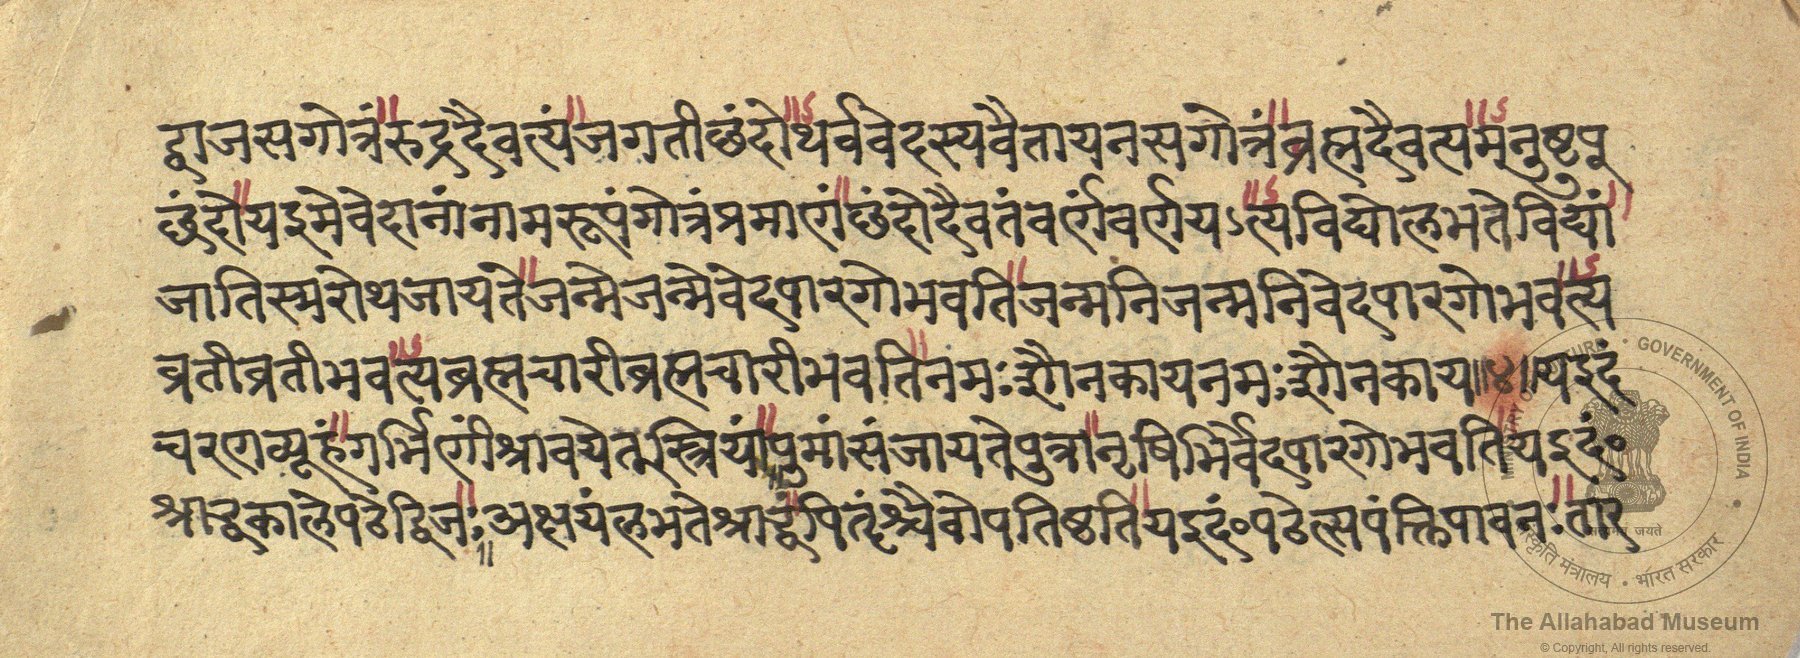 द्वाजसगोत्रं॥रुद्रदैवत्यं॥जगतीछंदो॥ऽथर्ववेदस्यवैतायनसगोत्रं॥ब्रह्मदैवत्य॥ऽमनुष्टुप्
छंदो॥यइमेवेदानांनामरूपंगोत्रंप्रमाणं॥छंदोदैवतंवर्णंवर्णयऽत्य॥ऽविद्योलभतेविद्यां॥
जातिस्मरोथजायते॥जन्मेजन्मेवेदपारगोभवति॥जन्मनिजन्मनिवेदपारगोभवत्य॥ऽ
व्रतीव्रतीभवत्य॥ऽब्रह्मचारीब्रह्मचारीभवति॥नमःशौनकायनमःशौनकाय॥४॥यइदं
चरणव्यूहं॥गर्भिणींश्रावयेत्स्त्रियां॥पुमांसंजायतेपुत्रा॥नृषिभिर्वेदपारगोभवति॥यइदं॰
श्राद्धकालेपठेद्विजः॥अक्षयंलभतेश्राद्धं॥पितॄंश्चैवोपतिष्ठति॥यइदं॰पठेत्सपंक्तिपावनः॥तार
GOVERNMENT OF INDIA
संस्कृति मंत्रालय • भारत सरकार
The Allahabad Museum
© Copyright, All rights reserved.